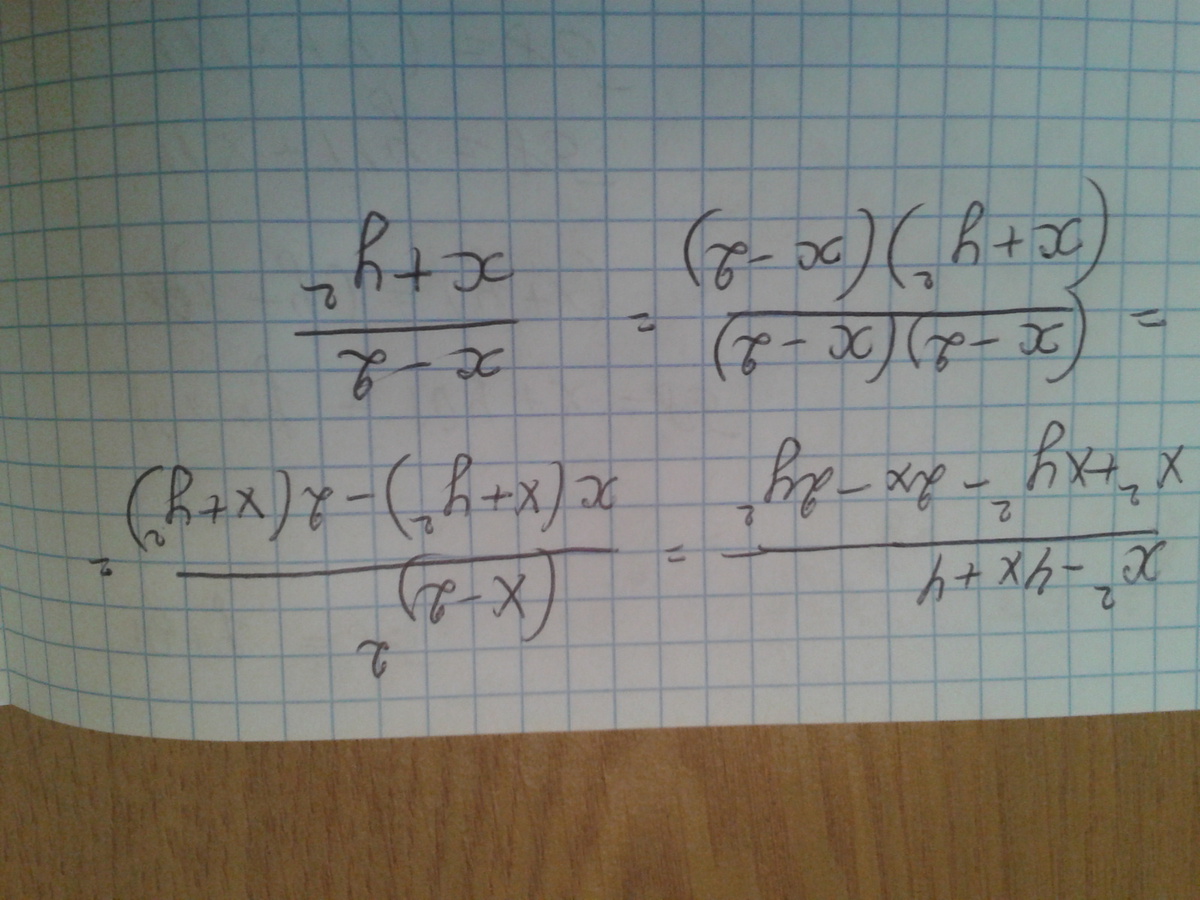 x² - 4x + 4 / x² + xy² - 2x - 2y² = (x - 2)² / x(x + y²) - 2(x + y²) =
= (x - 2)(x - 2) / (x + y²)(x - 2) = x - 2 / x + y²